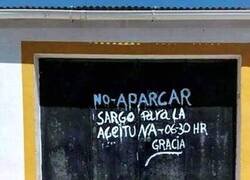 NO-APARCAR
SARGO PARA LA
ACEITUNA-06:30 HR
GRACIA